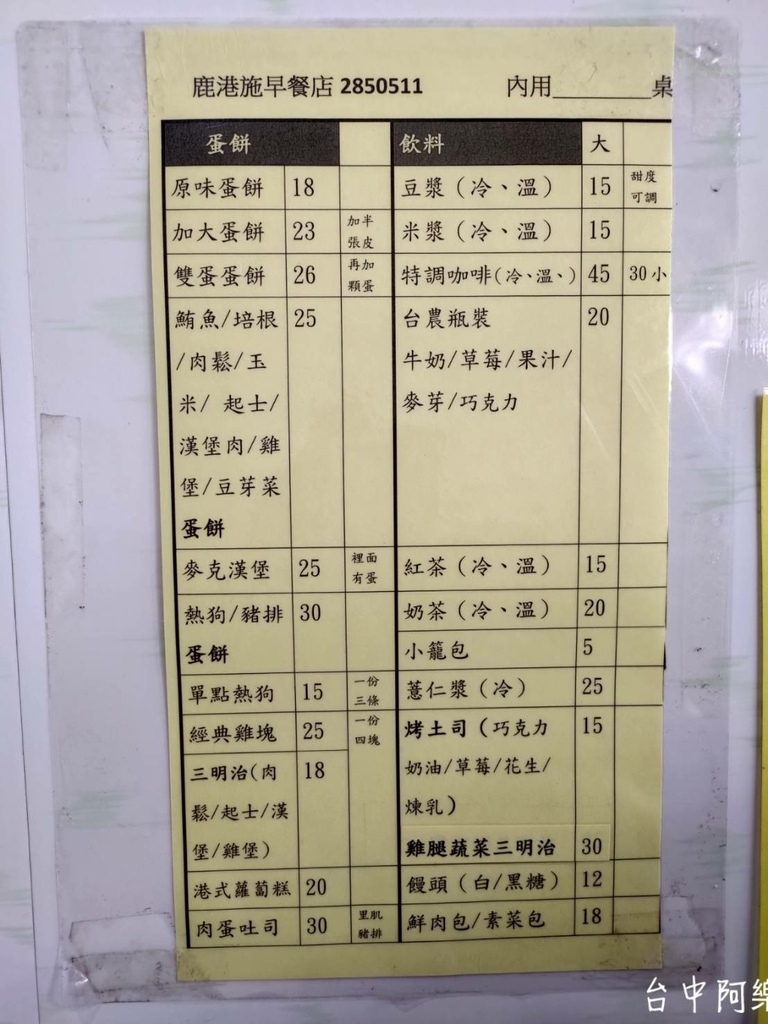 鹿港施早餐店 2850511 內用________桌
蛋餅
原味蛋餅 18
加大蛋餅 23 加半
張皮
雙蛋蛋餅 26 再加
顆蛋
鮪魚/培根 25
/肉鬆/玉
米/ 起士/
漢堡肉/雞
堡/豆芽菜
蛋餅
麥克漢堡 25 裡面
有蛋
熱狗/豬排 30
蛋餅
單點熱狗 15 一份
三條
經典雞塊 25 一份
四塊
三明治(肉 18
鬆/起士/漢
堡/雞堡)
港式蘿蔔糕 20
肉蛋吐司 30 里肌
豬排
飲料 大
豆漿（冷、溫） 15 甜度
可調
米漿（冷、溫） 15
特調咖啡(冷、溫、) 45 30 小
台農瓶裝 20
牛奶/草莓/果汁/
麥芽/巧克力
紅茶（冷、溫） 15
奶茶（冷、溫） 20
小籠包 5
薏仁漿（冷） 25
烤土司（巧克力 15
奶油/草莓/花生/
煉乳）
雞腿蔬菜三明治 30
饅頭（白/黑糖） 12
鮮肉包/素菜包 18
台中阿樂